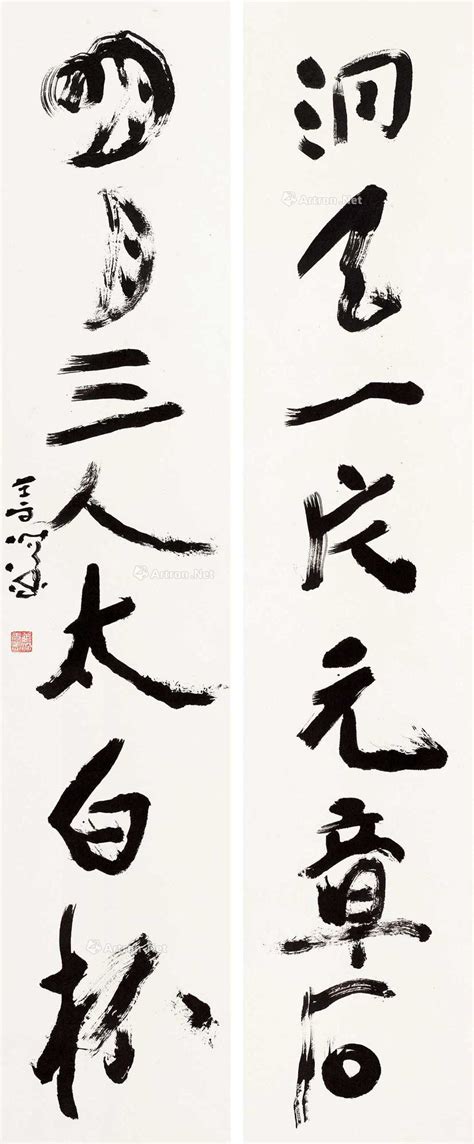 洞天一片元章石
明月三人太白杯
Artron.Net
Artron.Net
Artron.Net
Artron.Net